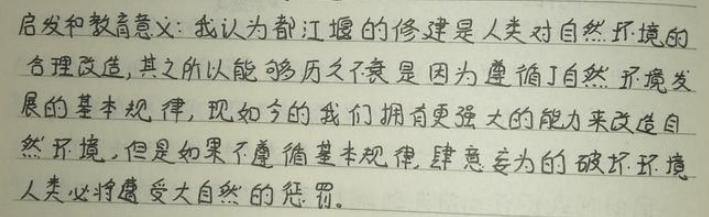 启发和教育意义:我认为都江堰的修建是人类对自然环境的
合理改造,其之所以能够历久不衰是因为遵循了自然环境发
展的基本规律,现如今的我们拥有更强大的能力来改造自
然环境,但是如果不遵循基本规律,肆意妄为的破坏环境
人类必将遭受大自然的惩罚。